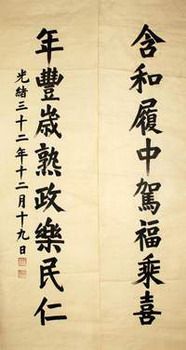 含和履中駕福乘喜
年豐歲熟政樂民仁
光緒三十二年十二月十九日